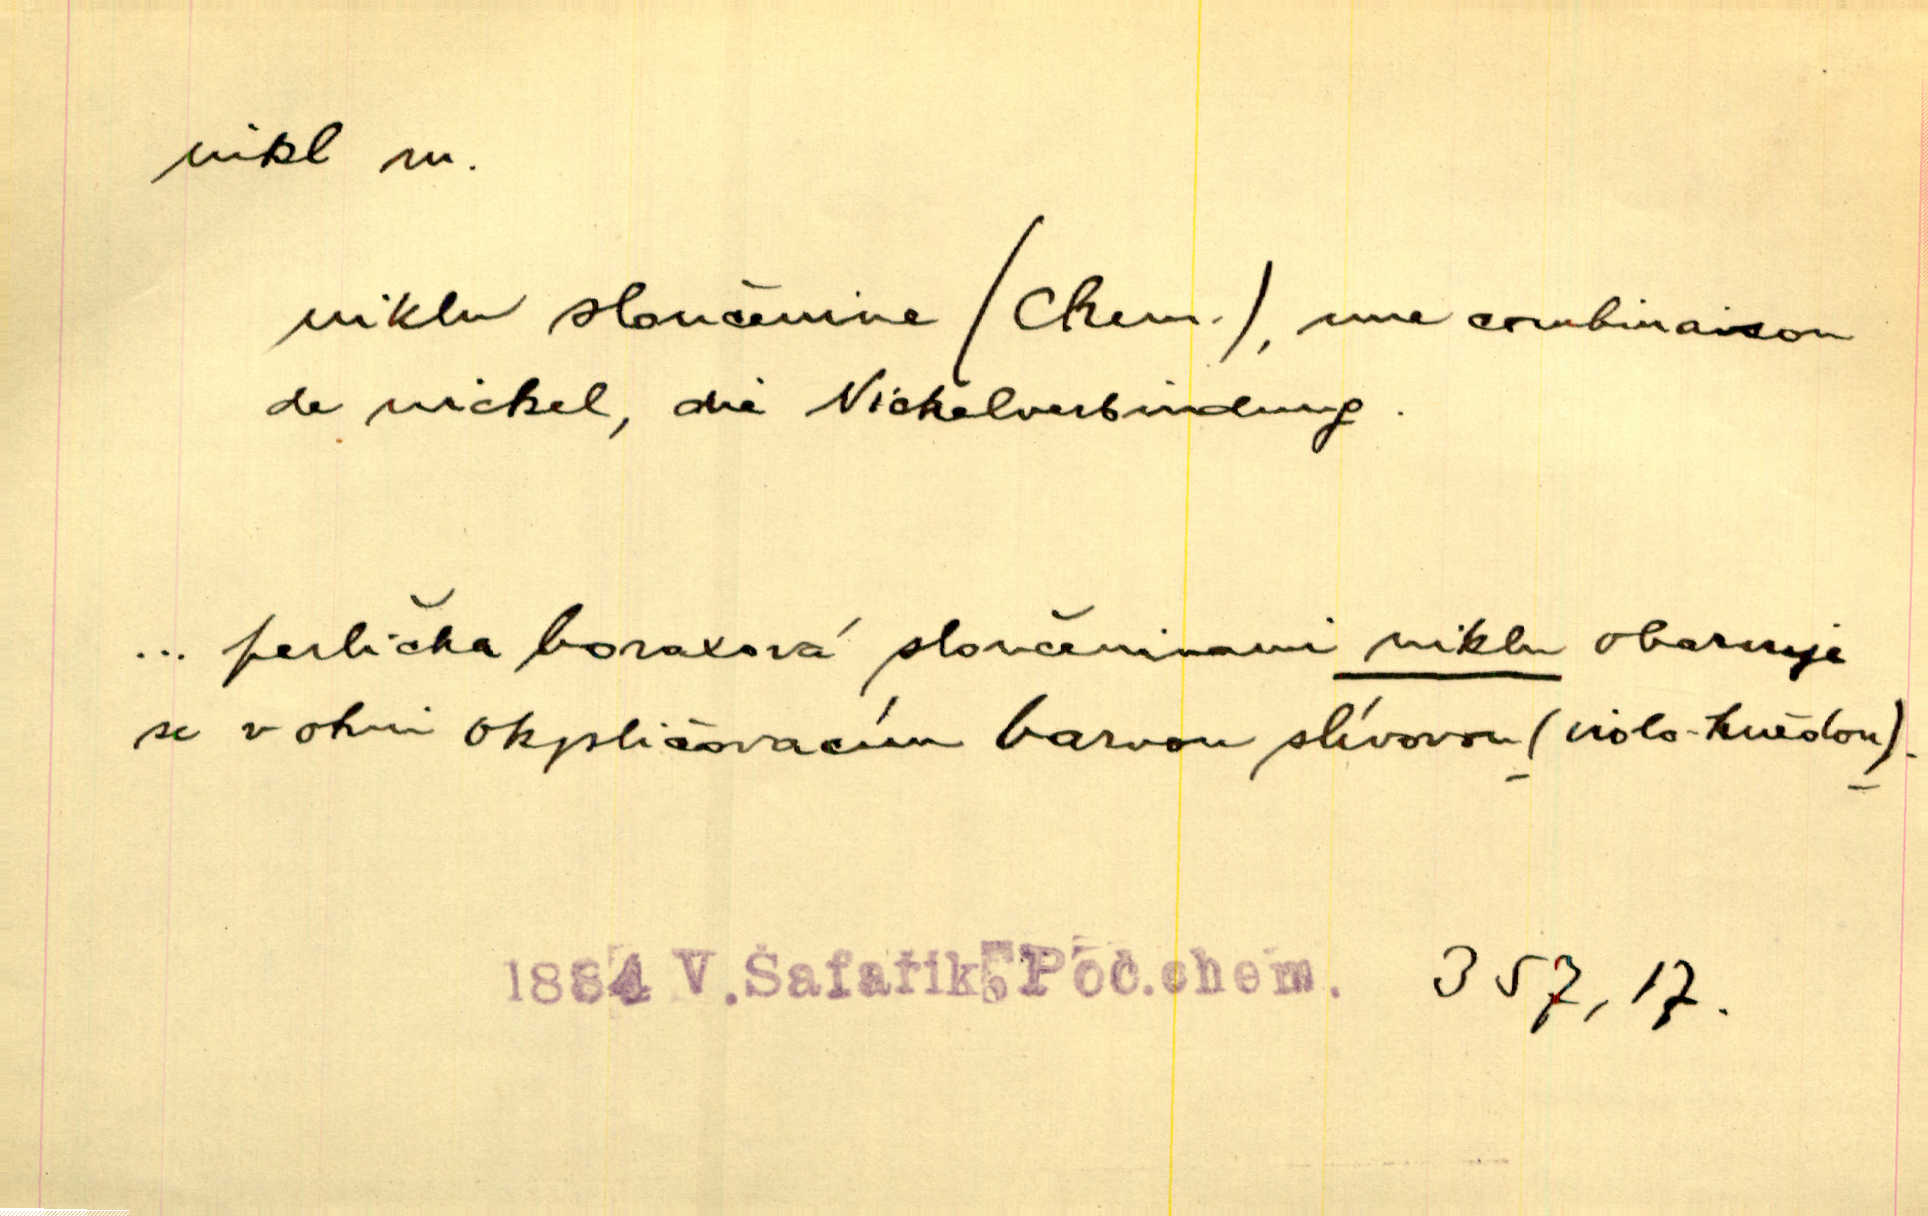 nikl m.
niklu sloučenina (Chem.), une combinaison
de nickel, die Nickelverbindung.
... perlička boraxová sloučeninami niklu obarvuje
se v ohni okysličovacím barvou slívovou (violo-hnědou).
1884 V. Šafařík, Poč. chem. 357, 17.